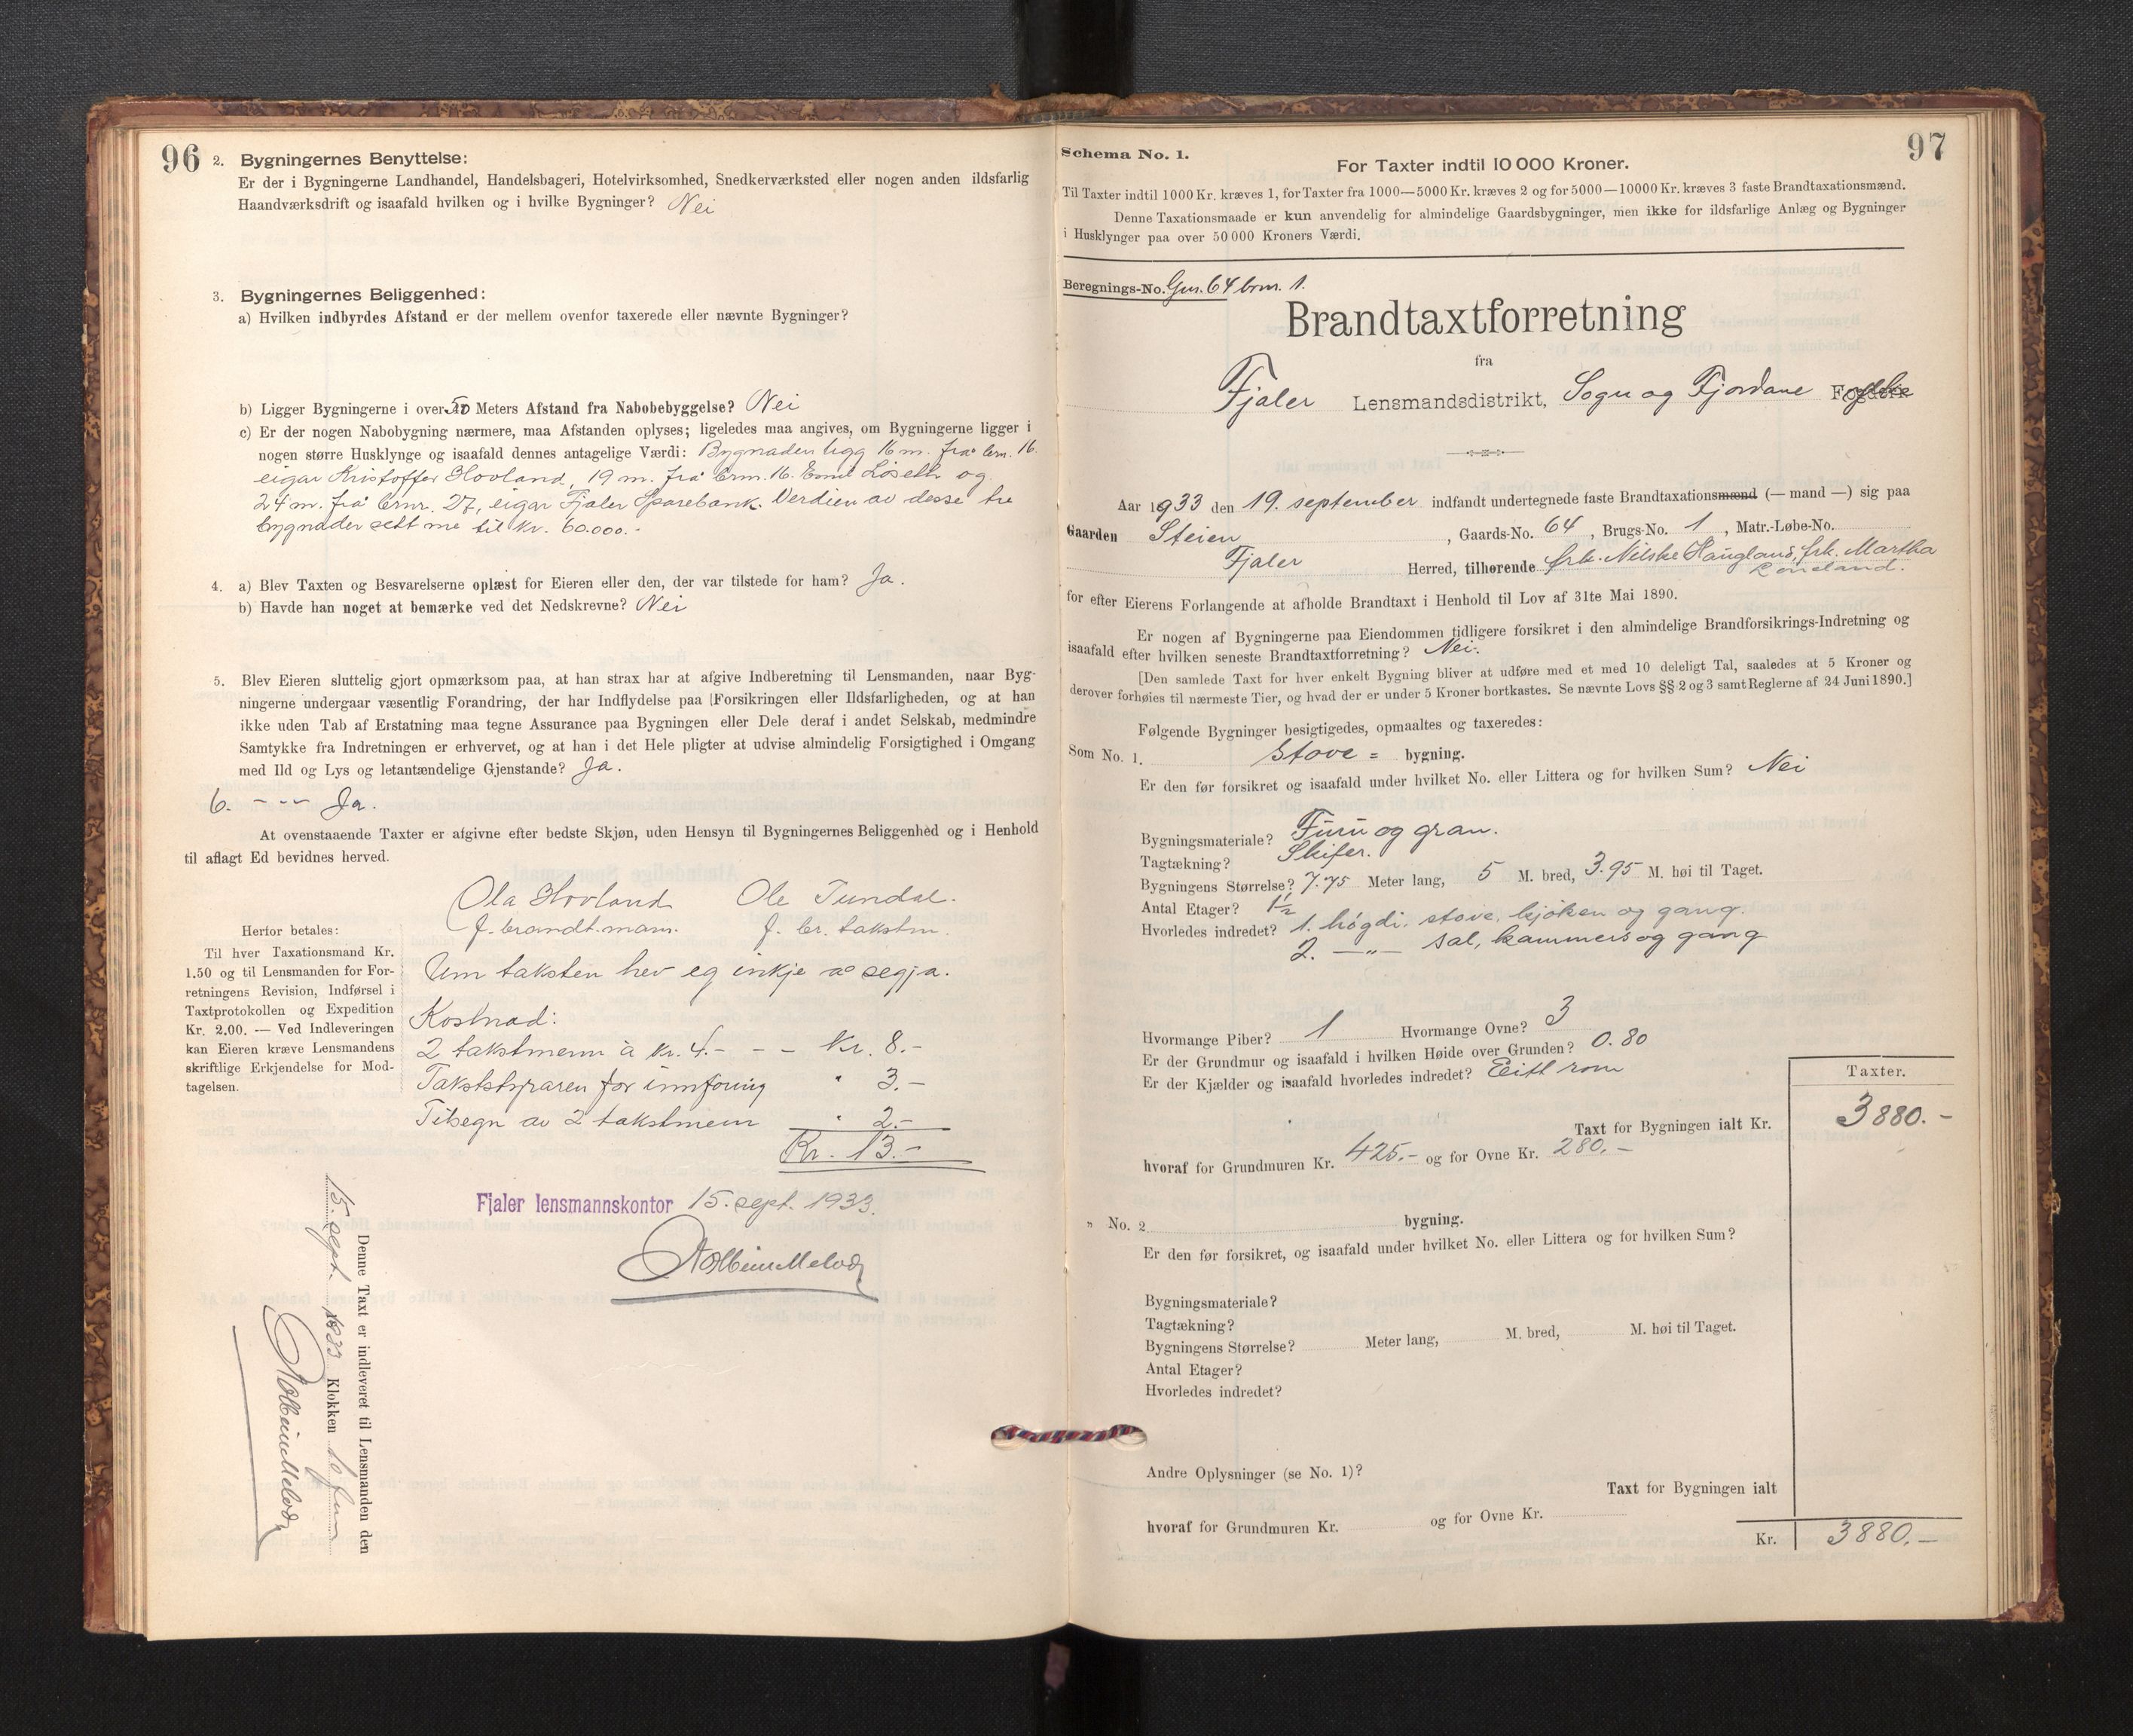 96
2. Bygningernes Benyttelse:
Er der i Bygningerne Landhandel, Handelsbageri, Hotelvirksomhed, Snedkerværksted eller nogen anden ildsfarlig
Haandværksdrift og isaafald hvilken og i hvilke Bygninger? Nei
3. Bygningernes Beliggenhed:
a) Hvilken indbyrdes Afstand er der mellem ovenfor taxerede eller nævnte Bygninger?
b) Ligger Bygningerne i over 50 Meters Afstand fra Nabobebyggelse? Nei
c) Er der nogen Nabobygning nærmere, maa Afstanden oplyses; ligeledes maa angives, om Bygningerne ligger i
nogen større Husklynge og isaafald dennes antagelige Værdi: Bygnaden ligg 16 m. frå brn. 16.
eigar Kristoffer Hovland, 19 m. frå brn. 16. Emil Løseth og
24 m. frå brnr. 27, eigar Fjaler Sparebank. Verdien av desse tre
bygnader sett me til kr. 60.000.-
4. a) Blev Taxten og Besvarelserne oplæst for Eieren eller den, der var tilstede for ham? Ja.
b) Havde han noget at bemærke ved det Nedskrevne? Nei
5. Blev Eieren sluttelig gjort opmærksom paa, at han strax har at afgive Indberetning til Lensmanden, naar Byg-
ningerne undergaar væsentlig Forandring, der har Indflydelse paa Forsikringen eller Ildsfarligheden, og at han
ikke uden Tab af Erstatning maa tegne Assurance paa Bygningen eller Dele deraf i andet Selskab, medmindre
Samtykke fra Indretningen er erhvervet, og at han i det Hele pligter at udvise almindelig Forsigtighed i Omgang
med Ild og Lys og letantændelige Gjenstande? Ja.
6. - -"- Ja.
At ovenstaaende Taxter er afgivne efter bedste Skjøn, uden Hensyn til Bygningernes Beliggenhed og i Henhold
til aflagt Ed bevidnes herved.
Ola Hovland Ole Tundal.
f. brandt.mann. f. br. takstm.
Herfor betales:
Til hver Taxationsmand Kr.
1.50 og til Lensmanden for For-
retningens Revision, Indførsel i
Taxtprotokollen og Expedition
Kr. 2.00. — Ved Indleveringen
kan Eieren kræve Lensmandens
skriftlige Erkjendelse for Mod-
tagelsen.
Um taksten hev eg inkje å segja.
Kostnad:
2 takstmenn à kr. 4.- - - Kr. 8.-
Takststyraren for innføring " 3.-
Tilsegn av 2 takstmenn " 2.-
Kr. 13.-
Fjaler lensmannskontor 15. sept. 1933.
Denne Taxt er indleveret til Lensmanden den
15. sept. 1933 Klokken 10 fm
97
Schema No. 1.
For Taxter indtil 10 000 Kroner.
Til Taxter indtil 1000 Kr. kræves 1, for Taxter fra 1000—5000 Kr. kræves 2 og for 5000—10000 Kr. kræves 3 faste Brandtaxationsmænd.
Denne Taxationsmaade er kun anvendelig for almindelige Gaardsbygninger, men ikke for ildsfarlige Anlæg og Bygninger
i Husklynger paa over 50 000 Kroners Værdi.
Beregnings-No. Gnr. 64 brn. 1.
Brandtaxtforretning
fra
Fjaler Lensmandsdistrikt, Sogn og Fjordane Fogderi fylke
Aar 1933 den 19. september indfandt undertegnede faste Brandtaxationsmænd (— mand —) sig paa
Gaarden Steien, Gaards-No. 64, Brugs-No. 1, Matr.-Løbe-No.
Fjaler Herred, tilhørende frk. Nilske Haugland, frk. Martha
for efter Eierens Forlangende at afholde Brandtaxt i Henhold til Lov af 31te Mai 1890.
Er nogen af Bygningerne paa Eiendommen tidligere forsikret i den almindelige Brandforsikrings-Indretning og
isaafald efter hvilken seneste Brandtaxtforretning? Nei.
[Den samlede Taxt for hver enkelt Bygning bliver at udføre med et med 10 deleligt Tal, saaledes at 5 Kroner og
derover forhøies til nærmeste Tier, og hvad der er under 5 Kroner bortkastes. Se nævnte Lovs §§ 2 og 3 samt Reglerne af 24 Juni 1890.]
Følgende Bygninger besigtigedes, opmaaltes og taxeredes:
Som No. 1. Stove = bygning.
Er den før forsikret og isaafald under hvilket No. eller Littera og for hvilken Sum? Nei
Bygningsmateriale? Furu og gran.
Tagtækning? Skifer.
Bygningens Størrelse? 7.75 Meter lang, 5 M. bred, 3.95 M. høi til Taget.
Antal Etager? 1½
Hvorledes indredet? 1. høgdi: stove, kjøken og gang.
2. —"— sal, kammers og gang
Hvormange Piber? 1 Hvormange Ovne? 3
Er der Grundmur og isaafald i hvilken Høide over Grunden? 0.80
Er der Kjælder og isaafald hvorledes indredet? Eitt rom
Taxter.
Taxt for Bygningen ialt Kr. 3880.-
hvoraf for Grundmuren Kr. 425.- og for Ovne Kr. 280.-
" No. 2 bygning.
Er den før forsikret, og isaafald under hvilket No. eller Littera og for hvilken Sum?
Bygningsmateriale?
Tagtækning?
Bygningens Størrelse? Meter lang, M. bred, M. høi til Taget.
Antal Etager?
Hvorledes indredet?
Andre Oplysninger (se No. 1)?
Taxt for Bygningen ialt
hvoraf for Grundmuren Kr. og for Ovne Kr.
Kr. 3880.-